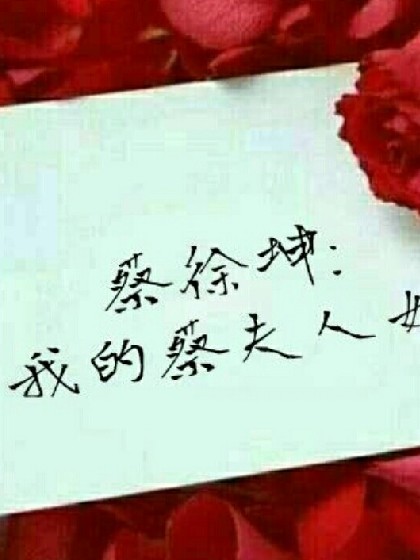 蔡徐坤：
我的蔡夫人